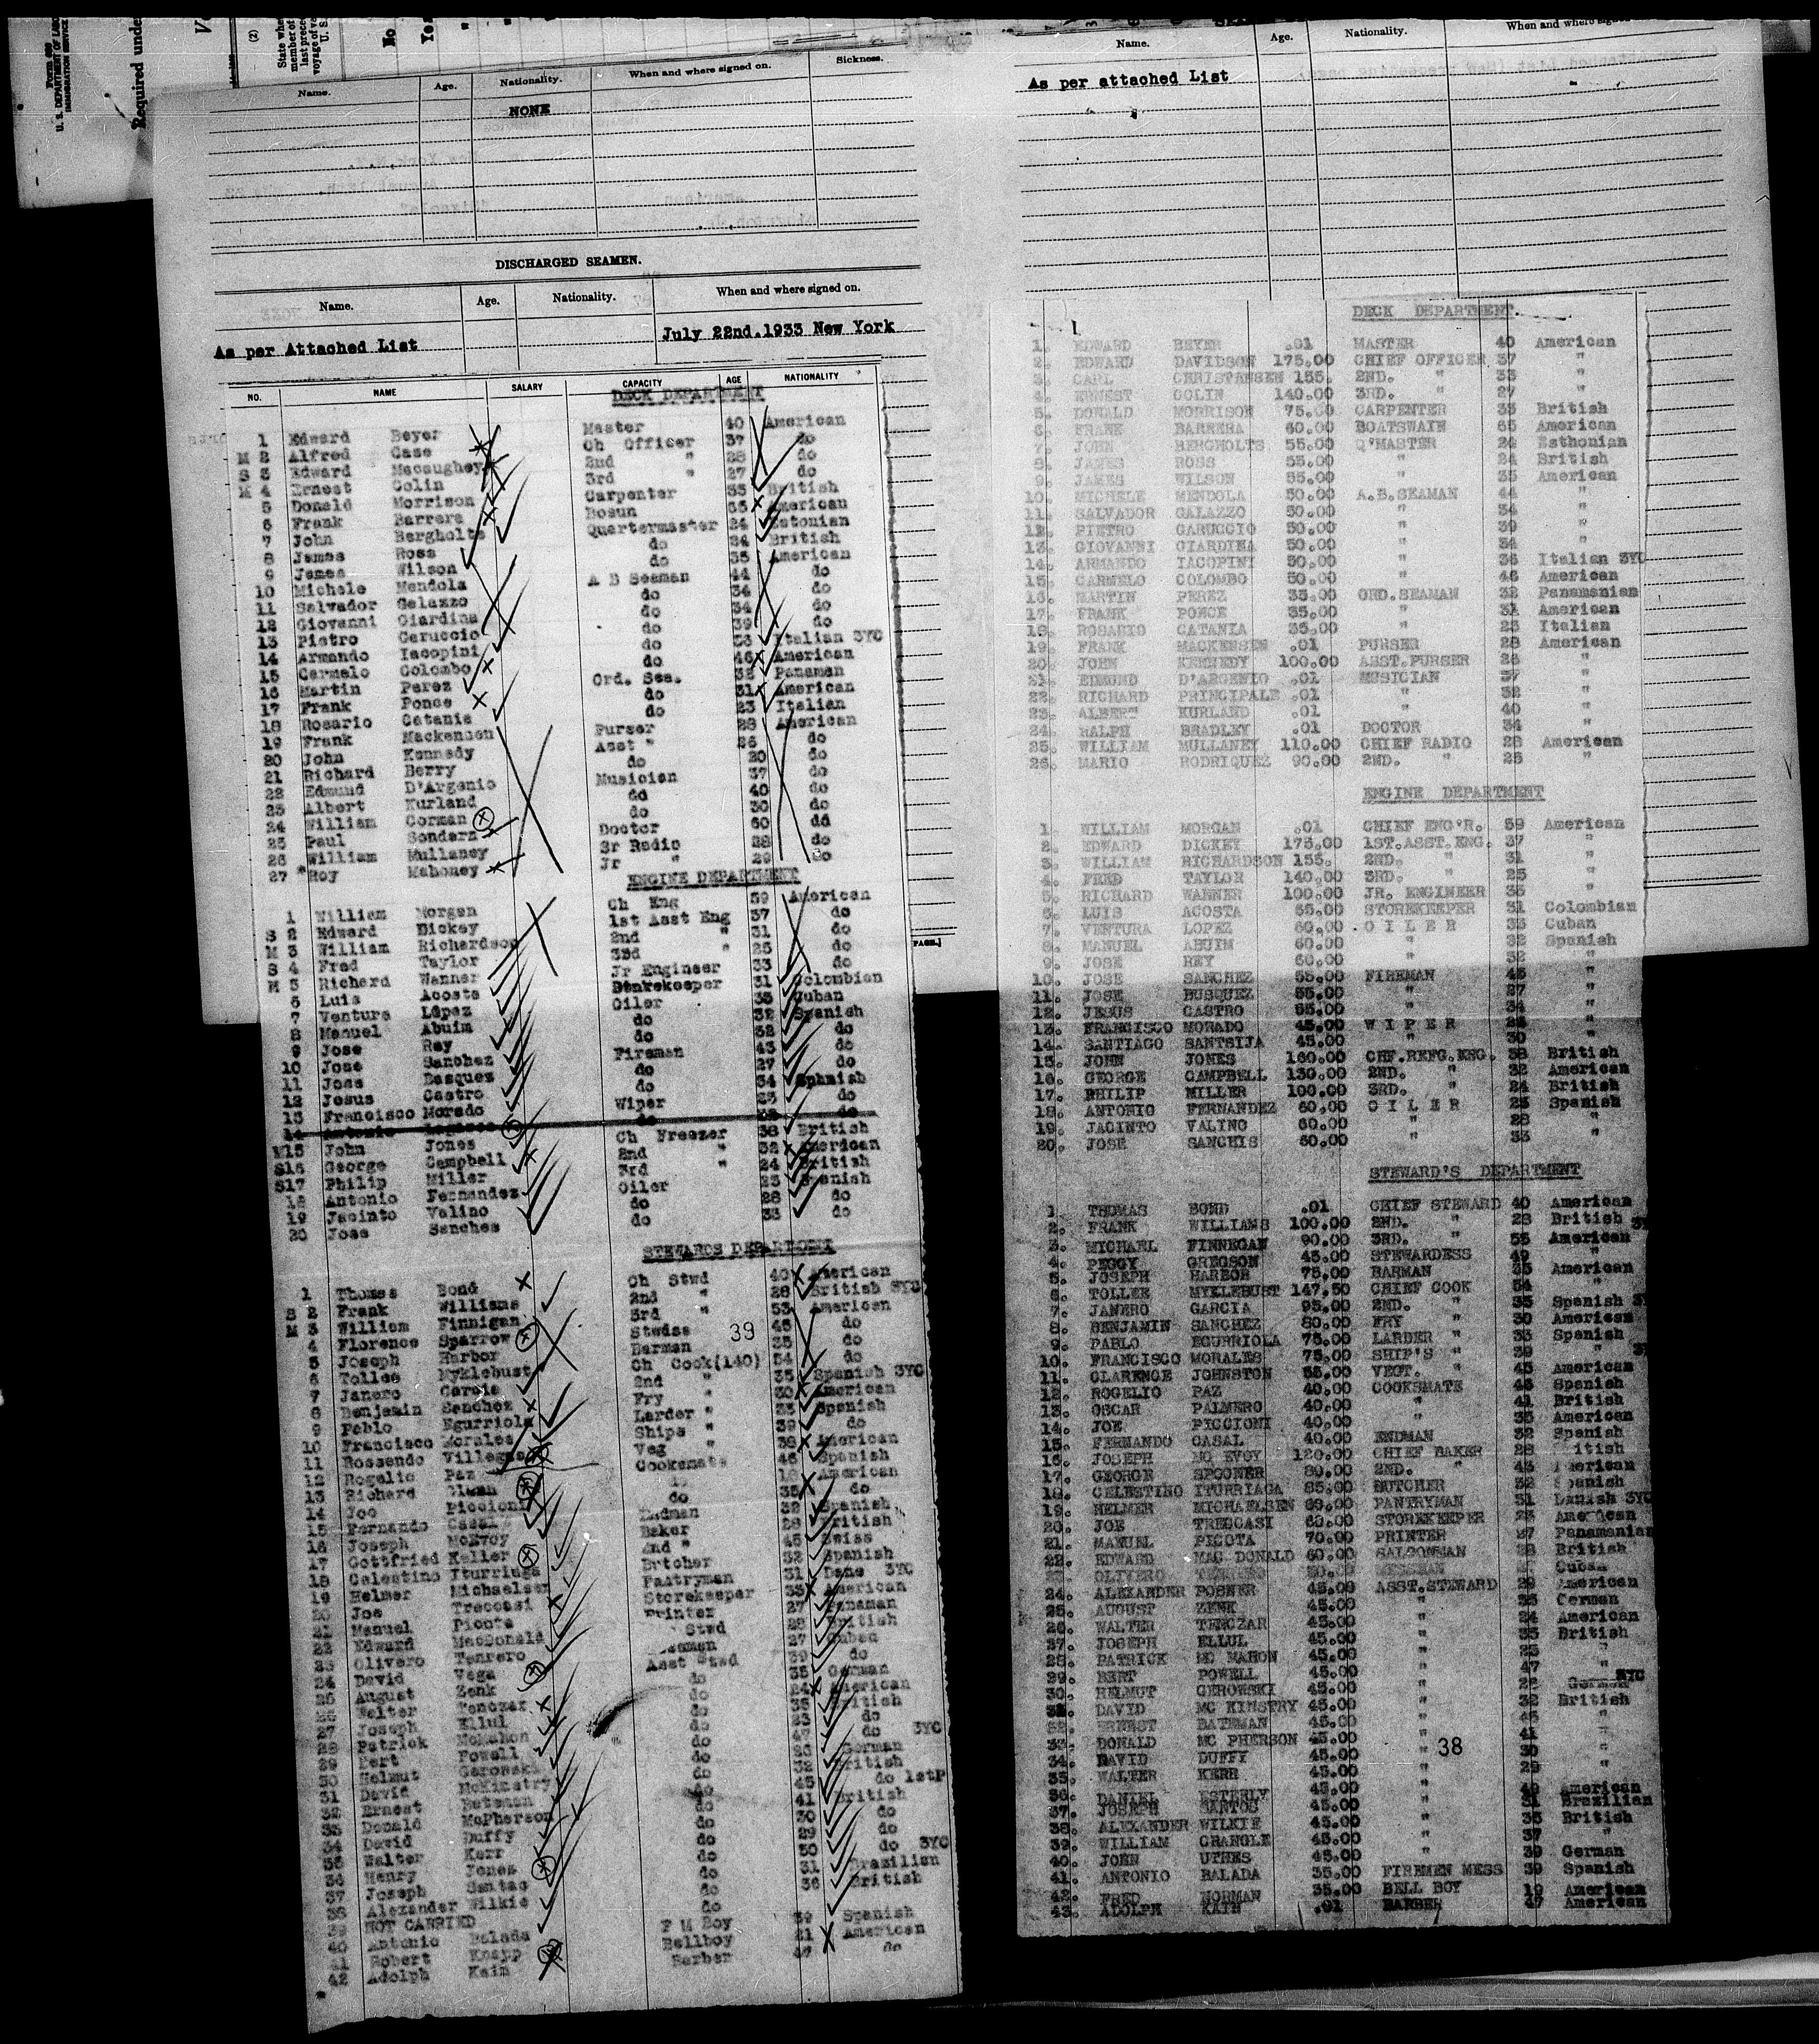 Form 680
U. S. DEPARTMENT OF LABOR
IMMIGRATION SERVICE
Required under
(2)
State whe
member of
last prece
voyage of va
U. S.
No
Yea
Name. Age. Nationality. When and where signed on. Sickness.
NONE
DISCHARGED SEAMEN.
Name. Age. Nationality. When and where signed on.
As per Attached List July 22nd.1933 New York
NO. NAME SALARY CAPACITY AGE NATIONALITY
DECK DEPARTMENT
1 Edward Beyer Master 40 American
M 2 Alfred Case Ch Officer 37 do
S 3 Edward Macaughey 2nd " 28 do
M 4 Ernest Colin 3rd " 27 do
5 Donald Morrison Carpenter 33 British
6 Frank Barrera Bosun 65 American
7 John Bergholts Quartermaster 24 Estonian
8 James Ross do 24 British
9 James Wilson do 35 American
10 Michele Mendola A B Seaman 44 do
11 Salvador Galazzo do 34 do
12 Giovanni Giardina do 34 do
13 Pietro Caruccio do 39 do
14 Armando Iacopini do 36 Italian 3YC
15 Carmelo Colombo do 46 American
16 Martin Perez Ord. Sea. 32 Panaman
17 Frank Ponce do 31 American
18 Rosario Catania do 23 Italian
19 Frank Mackensen Purser 28 American
20 John Kennedy Asst " 26 do
21 Richard Berry do 20 do
22 Edmund D'Argenio Musician 37 do
23 Albert Kurland do 40 do
24 William Gorman do 30 do
25 Paul Sonderz Doctor 60 do
26 William Mullaney Sr Radio 28 do
27 Roy Mahoney Jr " 29 do
ENGINE DEPARTMENT
1 William Morgan Ch Eng 59 American
S 2 Edward Dickey 1st Asst Eng 37 do
M 3 William Richardson 2nd " 31 do
S 4 Fred Taylor 3rd " 25 do
M 5 Richard Wanner Jr Engineer 33 do
6 Luis Acosta 31 Colombian
7 Ventura Lopez Oiler 33 Cuban
8 Manuel Abuim do 32 Spanish
9 Jose Rey do 32 do
10 Jose Sanchez Fireman 43 do
11 Jose Basquez do 27 do
12 Jesus Castro do 34 Sphnish
13 Francisco Morado Wiper 25 do
14 Antonio do
M15 John Jones Ch Freezer 38 British
S16 George Campbell 2nd " 32 American
S17 Philip Miller 3rd " 24 British
18 Antonio Fernandez Oiler 25 Spanish
19 Jacinto Valino do 28 do
20 Jose Sanches do 33 do
STEWARDS DEPARTMENT
1 Thomas Bond Ch Stwd 40 American
S 2 Frank Williams 2nd " 28 British 3YC
M 3 William Finnigan 3rd " 53 American
4 Florence Sparrow Stwdss 46 do
39
5 Joseph Harbor Barman 35 do
6 Tollee Myklebust Ch Cook(140) 54 do
7 Janero Garcia 2nd " 35 Spanish 3YC
8 Benjamin Sanchez Fry " 30 American
9 Pablo Egurriola Larder " 33 Spanish
10 Francisco Morales Ships " 39 do
11 Rossendo Villegas Veg " 38 American
12 Rogelio Paz Cooksmate 46 Spanish
13 Richard do 18 American
14 Joe Piccioni do 35 do
15 Fernando Casal Endman 32 Spanish
16 Joseph McEvoy Baker 28 British
17 Gottfried Keller 2nd " 45 Swiss
18 Celestino Iturriaga Butcher 32 Spanish
19 Helmer Michaelsen Pantryman 31 Dane 3YC
20 Joe Treccasi Storekeeper 33 American
21 Manuel Picota Printer 27 Panaman
22 Edward MacDonald Stwd 28 British
23 Olivero Terrero 27 Cuban
24 David Vega Asst Stwd 39 do
25 August Zenk do 35 German
26 Walter Tenczar do 24 American
27 Joseph Ellul do 35 British
28 Patrick McMahon do 23 do
29 Bert Powell do 47 do 3YC
30 Helmut Gerowski do German
31 David McKinstry do 32 British
32 Ernest Bateman do 45 do 1stP
33 Donald McPherson do 41 British
34 David Duffy do 30 do
35 Walter Kerr do 29 do
36 Henry Jones do 50 do 3YC
37 Joseph Santos do 31 Brazilian
38 Alexander Wilkie do 36 British
39 NOT CARRIED do
40 Antonio Balada F M Boy 39 Spanish
41 Robert Knapp Bellboy 21 American
42 Adolph Kain Barber 47 do
PAGE.]
Name. Age. Nationality. When and where signed
As per attached List
DECK DEPARTMENT.
1. EDWARD BEYER .01 MASTER 40 American
2. EDWARD DAVIDSON 175.00 CHIEF OFFICER 37 "
3. CARL CHRISTENSEN 155. 2ND. " 33 "
4. ERNEST COLIN 140.00 3RD. " 27 "
5. DONALD MORRISON 75.00 CARPENTER 33 British
6. FRANK BARRERA 60.00 BOATSWAIN 65 American
7. JOHN BERGHOLTS 55.00 Q'MASTER 24 Esthonian
8. JAMES ROSS 55.00 " 24 British
9. JAMES WILSON 55.00 " 35 American
10. MICHELE MENDOLA 50.00 A.B.SEAMAN 44 "
11. SALVADOR GALAZZO 50.00 " 34 "
12. PIETRO CARUCCIO 50.00 " 39 "
13. GIOVANNI GIARDINA 50.00 " 34 "
14. ARMANDO IACOPINI 50.00 " 36 Italian 3YC
15. CARMELO COLOMBO 50.00 " 46 American
16. MARTIN PEREZ 35.00 ORD.SEAMAN 32 Panamanian
17. FRANK PONCE 35.00 " 31 American
18. ROSARIO CATANIA 35.00 " 23 Italian
19. FRANK MACKENSEN .01 PURSER 28 American
20. JOHN KENNEDY 100.00 ASST.PURSER 26 "
21. EDMUND D'ARGENIO .01 MUSICIAN 37 "
22. RICHARD PRINCIPALE .01 " 32 "
23. ALBERT KURLAND .01 " 40 "
24. RALPH BRADLEY .01 DOCTOR 34 "
25. WILLIAM MULLANEY 110.00 CHIEF RADIO 28 American
26. MARIO RODRIQUEZ 90.00 2ND. " 25 "
ENGINE DEPARTMENT
1. WILLIAM MORGAN .01 CHIEF ENG'R. 59 American
2. EDWARD DICKEY 175.00 1ST.ASST.ENG. 37 "
3. WILLIAM RICHARDSON 155. 2ND. " 31 "
4. FRED TAYLOR 140.00 3RD. " 25 "
5. RICHARD WANNER 100.00 JR. ENGINEER 33 "
6. LUIS ACOSTA 65.00 STOREKEEPER 31 Colombian
7. VENTURA LOPEZ 60.00 OILER 33 Cuban
8. MANUEL ABUIM 60.00 " 32 Spanish
9. JOSE REY 60.00 " 32 "
10. JOSE SANCHEZ 55.00 FIREMAN 43 "
11. JOSE BUSQUEZ 55.00 " 27 "
12. JESUS CASTRO 55.00 " 34 "
13. FRANCISCO MORADO 45.00 WIPER "
14. SANTIAGO SANTSIJA 45.00 " 30 "
15. JOHN JONES 160.00 CHF.REFG.ENG. 38 British
16. GEORGE CAMPBELL 130.00 2ND. " 32 American
17. PHILIP MILLER 100.00 3RD. " 24 British
18. ANTONIO FERNANDEZ 60.00 OILER 25 Spanish
19. JACINTO VALINO 60.00 " 28 "
20. JOSE SANCHIS 60.00 " 33 "
STEWARD'S DEPARTMENT
1. THOMAS BOND .01 CHIEF STEWARD 40 American
2. FRANK WILLIAMS 100.00 2ND. " 28 British 3Y
3. MICHAEL FINNEGAN 90.00 3RD. " 55 American
4. PEGGY GREGSON 45.00 STEWARDESS 49 "
5. JOSEPH HARBOR 75.00 BARMAN 35 American
6. TOLLEE MYKLEBUST 147.50 CHIEF COOK 54 "
7. JANERO GARCIA 95.00 2ND. " 35 Spanish 3Y
8. BENJAMIN SANCHEZ 80.00 FRY " 30 American
9. PABLO EGURRIOLA 75.00 LARDER " 33 Spanish
10. FRANCISCO MORALES 75.00 SHIP'S " 39 "
11. CLARENCE JOHNSTON 55.00 VEGT. " 45 American
12. ROGELIO PAZ 40.00 COOKSMATE 46 Spanish
13. OSCAR PALMERO 40.00 " 41 British
14. JOE PICCIONI 40.00 " 35 American
15. FERNANDO CASAL 40.00 ENDMAN 32 Spanish
16. JOSEPH MC EVOY 120.00 CHIEF BAKER 28 itish
17. GEORGE SPOONER 80.00 2ND. " 43 American
18. CELESTINO ITURRIAGA 85.00 BUTCHER 32 Spanish
19. HELMER MICHAELSEN 60.00 PANTRYMAN 31 Danish 3YC
20. JOE TRECCASI 60.00 STOREKEEPER 33 American
21. MANUEL PICOTA 70.00 PRINTER 27 Panamanian
22. EDWARD MAC DONALD 60.00 SALOONMAN 28 British
23. OLIVERO TERRERO MESSMAN Cuban
24. ALEXANDER POSNER 45.00 ASST.STEWARD 29 American
25. AUGUST ZENK 45.00 " 35 German
26. WALTER TENCZAR 45.00 " 24 American
27. JOSEPH ELLUL 45.00 " 35 British
28. PATRICK MC MAHON 45.00 " 23 "
29. BERT POWELL 45.00 " 47 " 3YC
30. HELMUT GEROWSKI 45.00 " German
31. DAVID MC KINSTRY 45.00 " 32 British
32. ERNEST BATEMAN 45.00 " 45 "
33. DONALD MC PHERSON 45.00 " 41 "
38
34. DAVID DUFFY 45.00 " 30 "
35. WALTER KERR 45.00 " 29 "
36. DANIEL ESTERLY 45.00 " American
37. JOSEPH SANTOS 45.00 " 31 Brazilian
38. ALEXANDER WILKIE 45.00 " 36 British
39. WILLIAM CRANGLE 45.00 " 37 "
40. JOHN UTHES 45.00 " 39 German
41. ANTONIO BALADA 35.00 FIREMEN MESS 39 Spanish
42. FRED NORMAN 35.00 BELL BOY 19 American
43. ADOLPH KAIN .01 BARBER 47 American